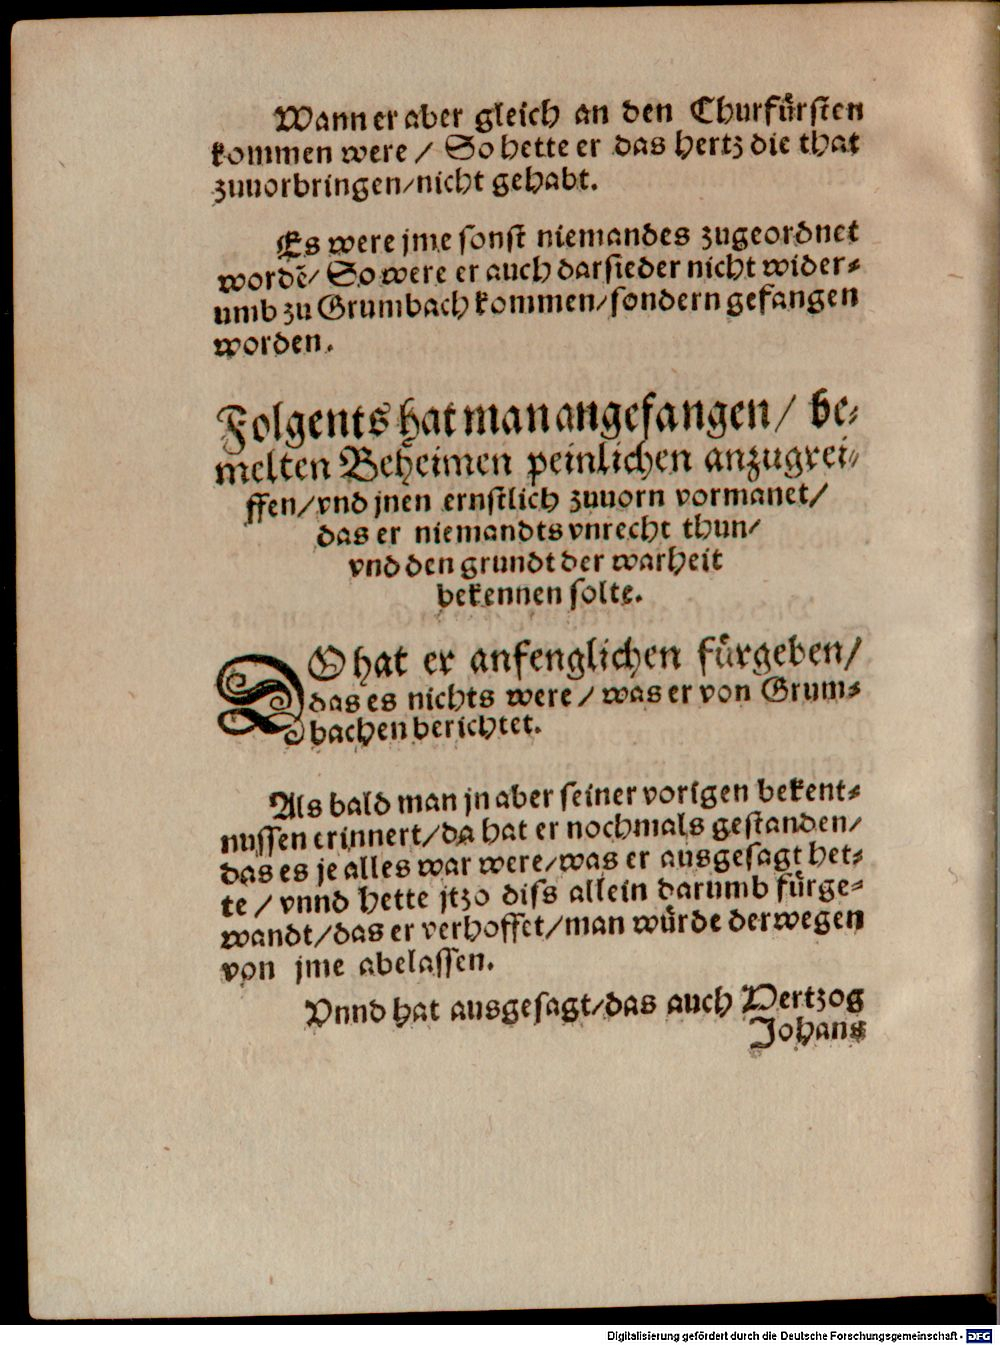 Wann er aber gleich an den Churfürsten
kommen were / So hette er das hertz die that
zuuorbringen/nicht gehabt.
Es were jme sonst niemandes zugeordnet
wordẽ/ So were er auch darsieder nicht wider-
umb zu Grumbach kommen/sondern gefangen
worden.
Folgents hat man angefangen/ be-
melten Beheimen peinlichen anzugrei-
ffen/vnd jnen ernstlich zuuorn vormanet/
das er niemandts vnrecht thun/
vnd den grundt der warheit
bekennen solte.
SO hat er anfenglichen fürgeben/
das es nichts were / was er von Grum-
bachen berichtet.
Als bald man jn aber seiner vorigen bekent-
nussen erinnert/da hat er nochmals gestanden/
das es je alles war were/was er ausgesagt het-
te / vnnd hette jtzo diss allein darumb fürge-
wandt/das er verhoffet/man würde derwegen
von jme abelassen.
Vnnd hat ausgesagt/das auch Hertzog
Johans
Digitalisierung gefördert durch die Deutsche Forschungsgemeinschaft - DFG